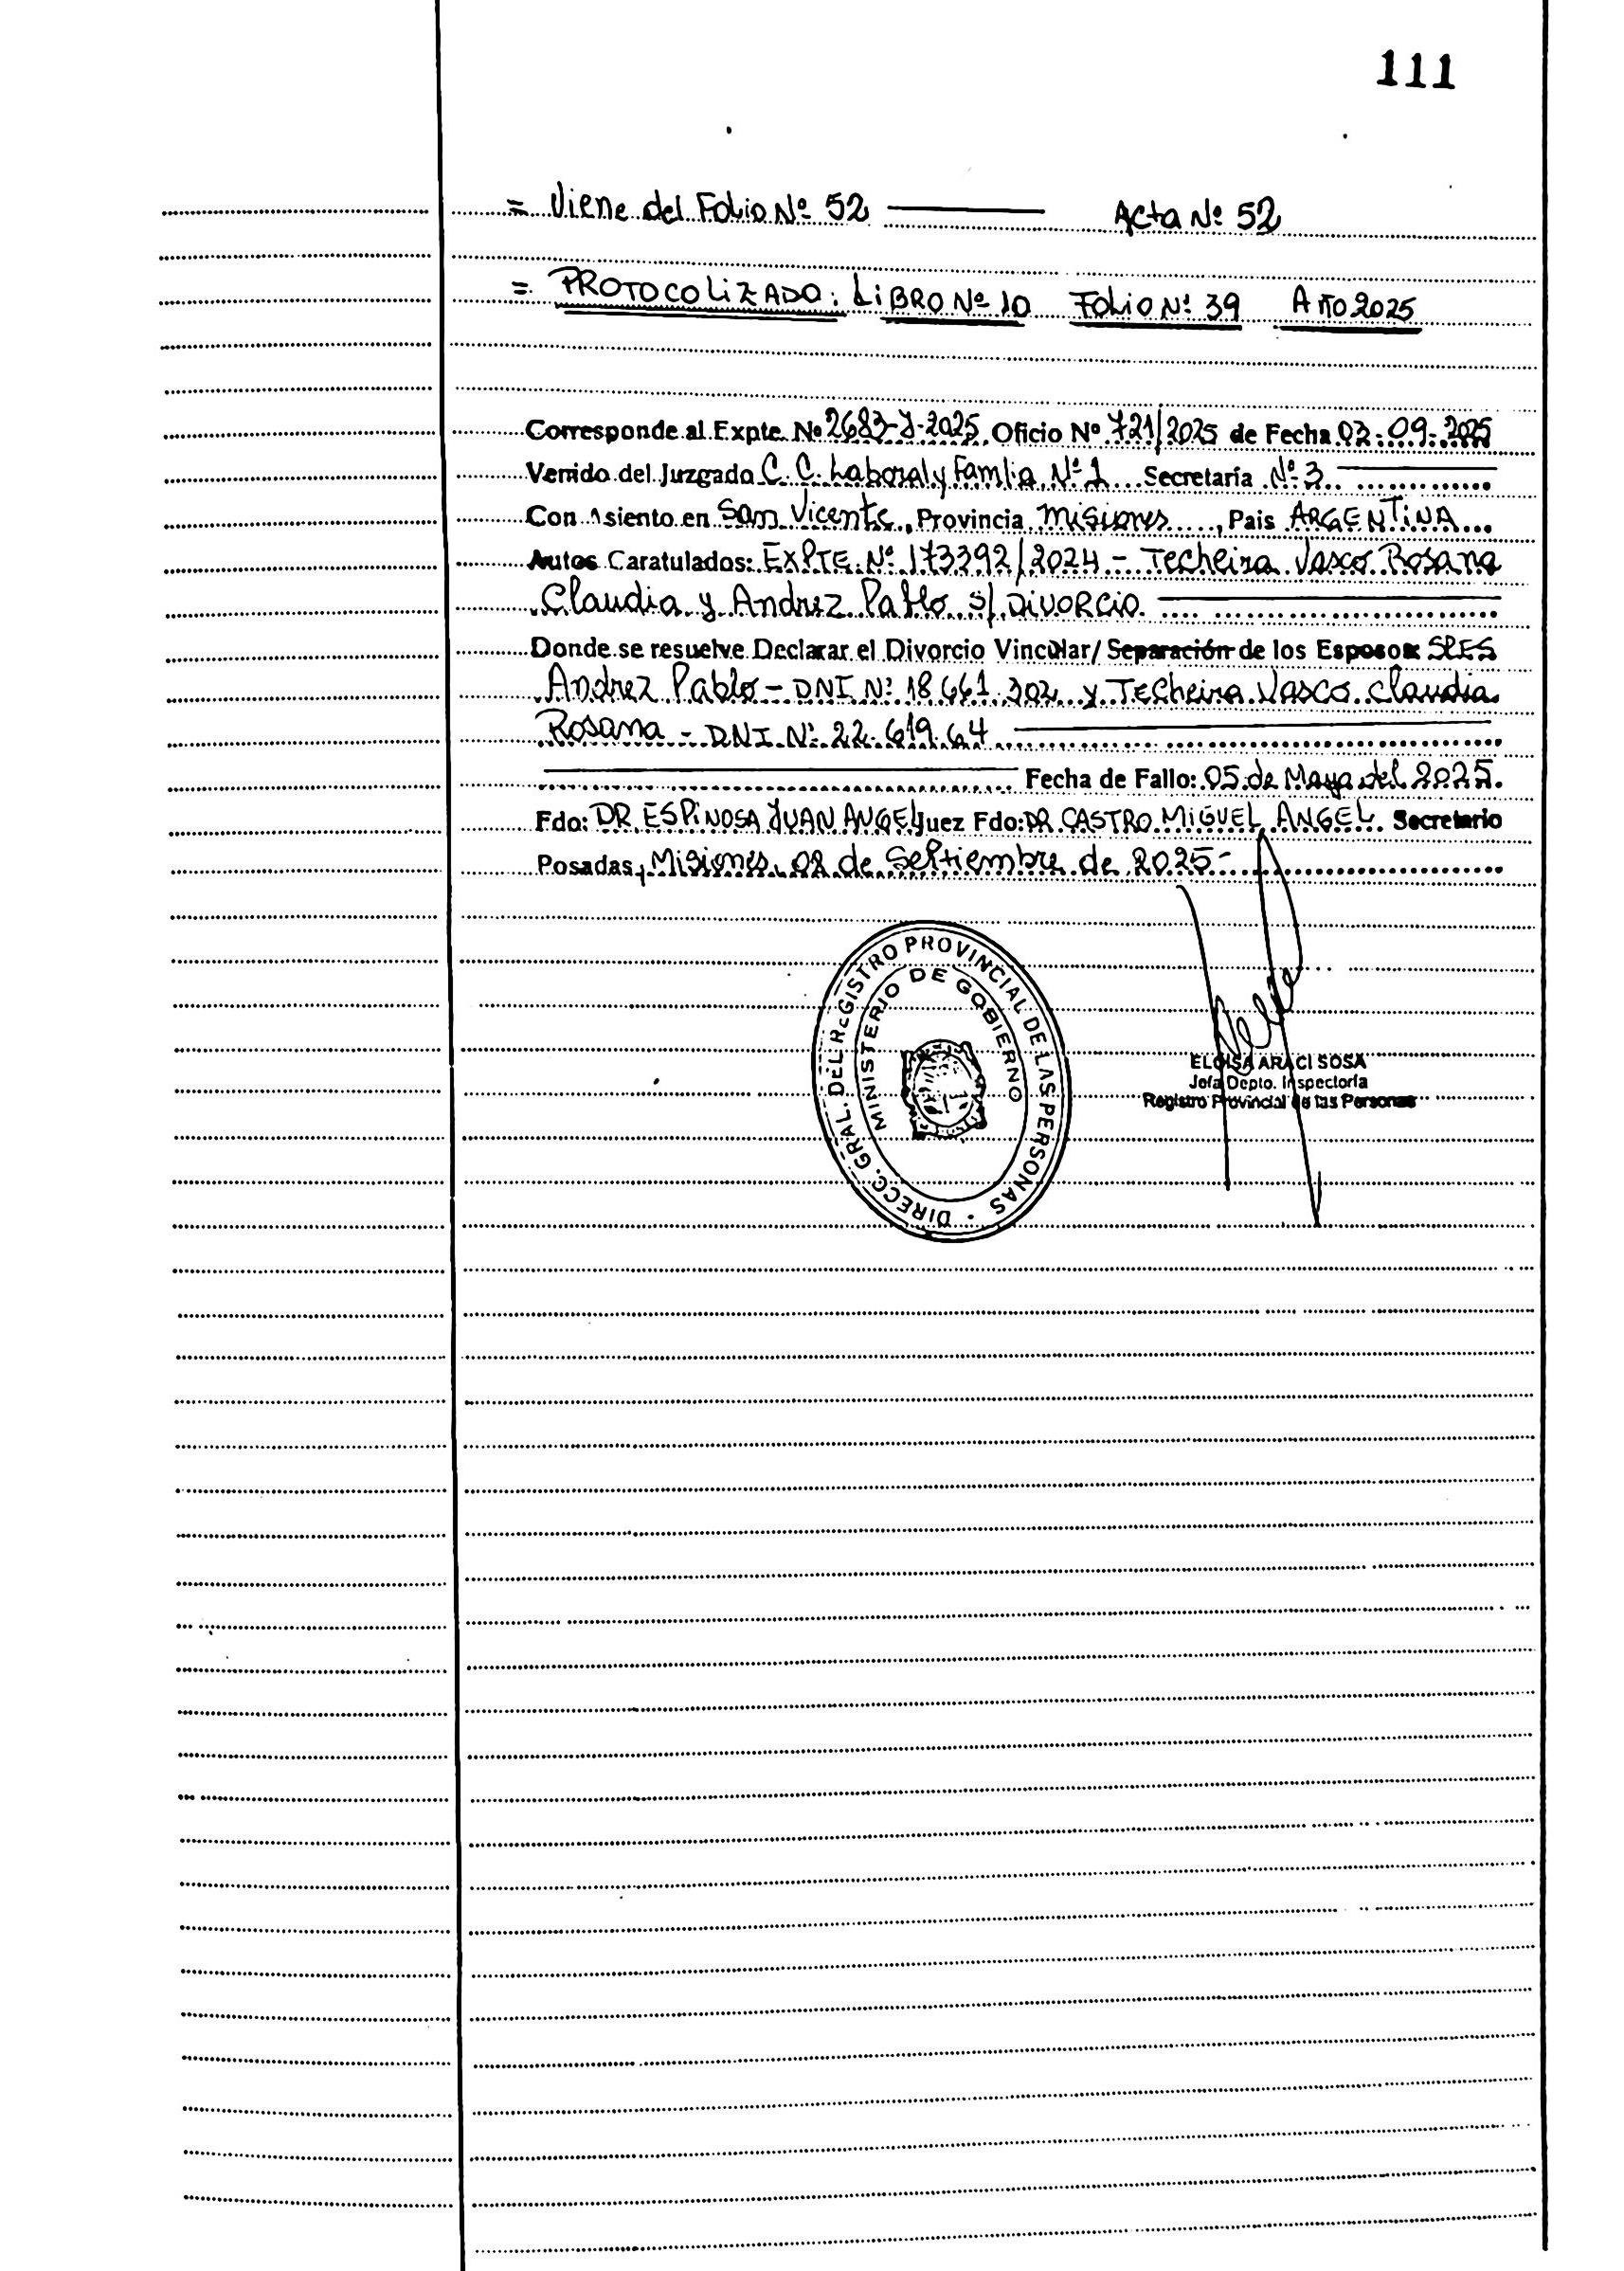 111
= Viene del Folio Nº 52 Acta Nº 52
= PROTOCOLIZADO: LIBRO Nº 10 FOLIO Nº 39 AÑO 2025
Corresponde al Expte. Nº 2683-J-2025 Oficio Nº 721/2025 de Fecha 03-09-2025
Venido del Juzgado C.C. Laboral y Famlia Nº 1 Secretaría Nº 3
Con Asiento en San Vicente, Provincia Misiones, Pais ARGENTINA
Autos Caratulados: EXPTE Nº 173392/2024 - Techeira Vasco Rosana
Claudia y Andrez Pablo S/ DIVORCIO
Donde se resuelve Declarar el Divorcio Vincular/ Separación de los Esposos
Andrez Pablo - DNI Nº 18.661.302 y Techeira Vasco Claudia
Rosana - DNI Nº 22.619.64
Fecha de Fallo: 05 de Mayo del 2025.
Fdo: DR ESPINOSA JUAN ANGEL Juez Fdo: DR CASTRO MIGUEL ANGEL Secretario
Posadas, Misiones, 08 de Septiembre de 2025-
DIRECC. GRAL. DEL REGISTRO PROVINCIAL DE LAS PERSONAS
MINISTERIO DE GOBIERNO
ELOISA ARACI SOSA
Jefa Depto. Inspectoría
Registro Provincial de las Personas